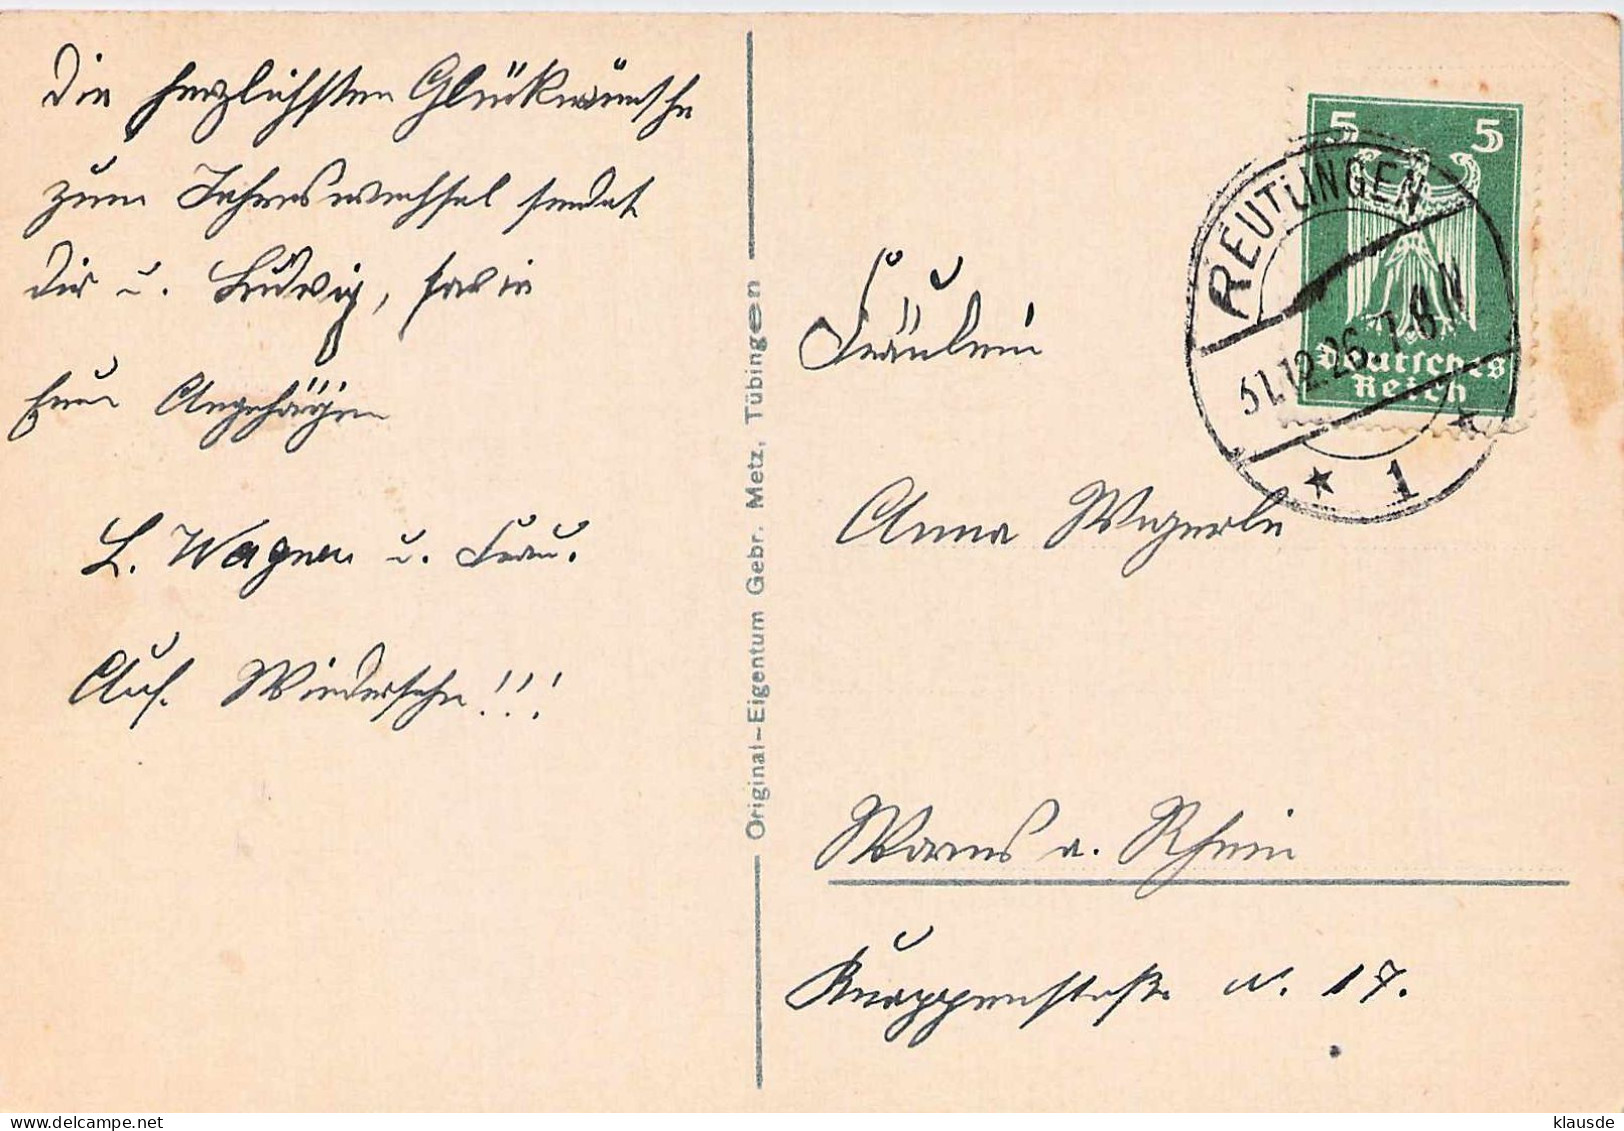 Die herzlichsten Glückwünsche
zum Jahreswechsel sendet
Dir u. Ludwig,
Eure Angehörigen
L. Wagner u. Frau.
Auf Wiedersehn!!!
Original-Eigentum Gebr. Metz, Tübingen
5 5
Deutsches
Reich
REUTLINGEN
31.12.26. 7-8 N
* 1 *
Fräulein
Anna Wegerle
Worms a. Rhein
N. 17.
klausde